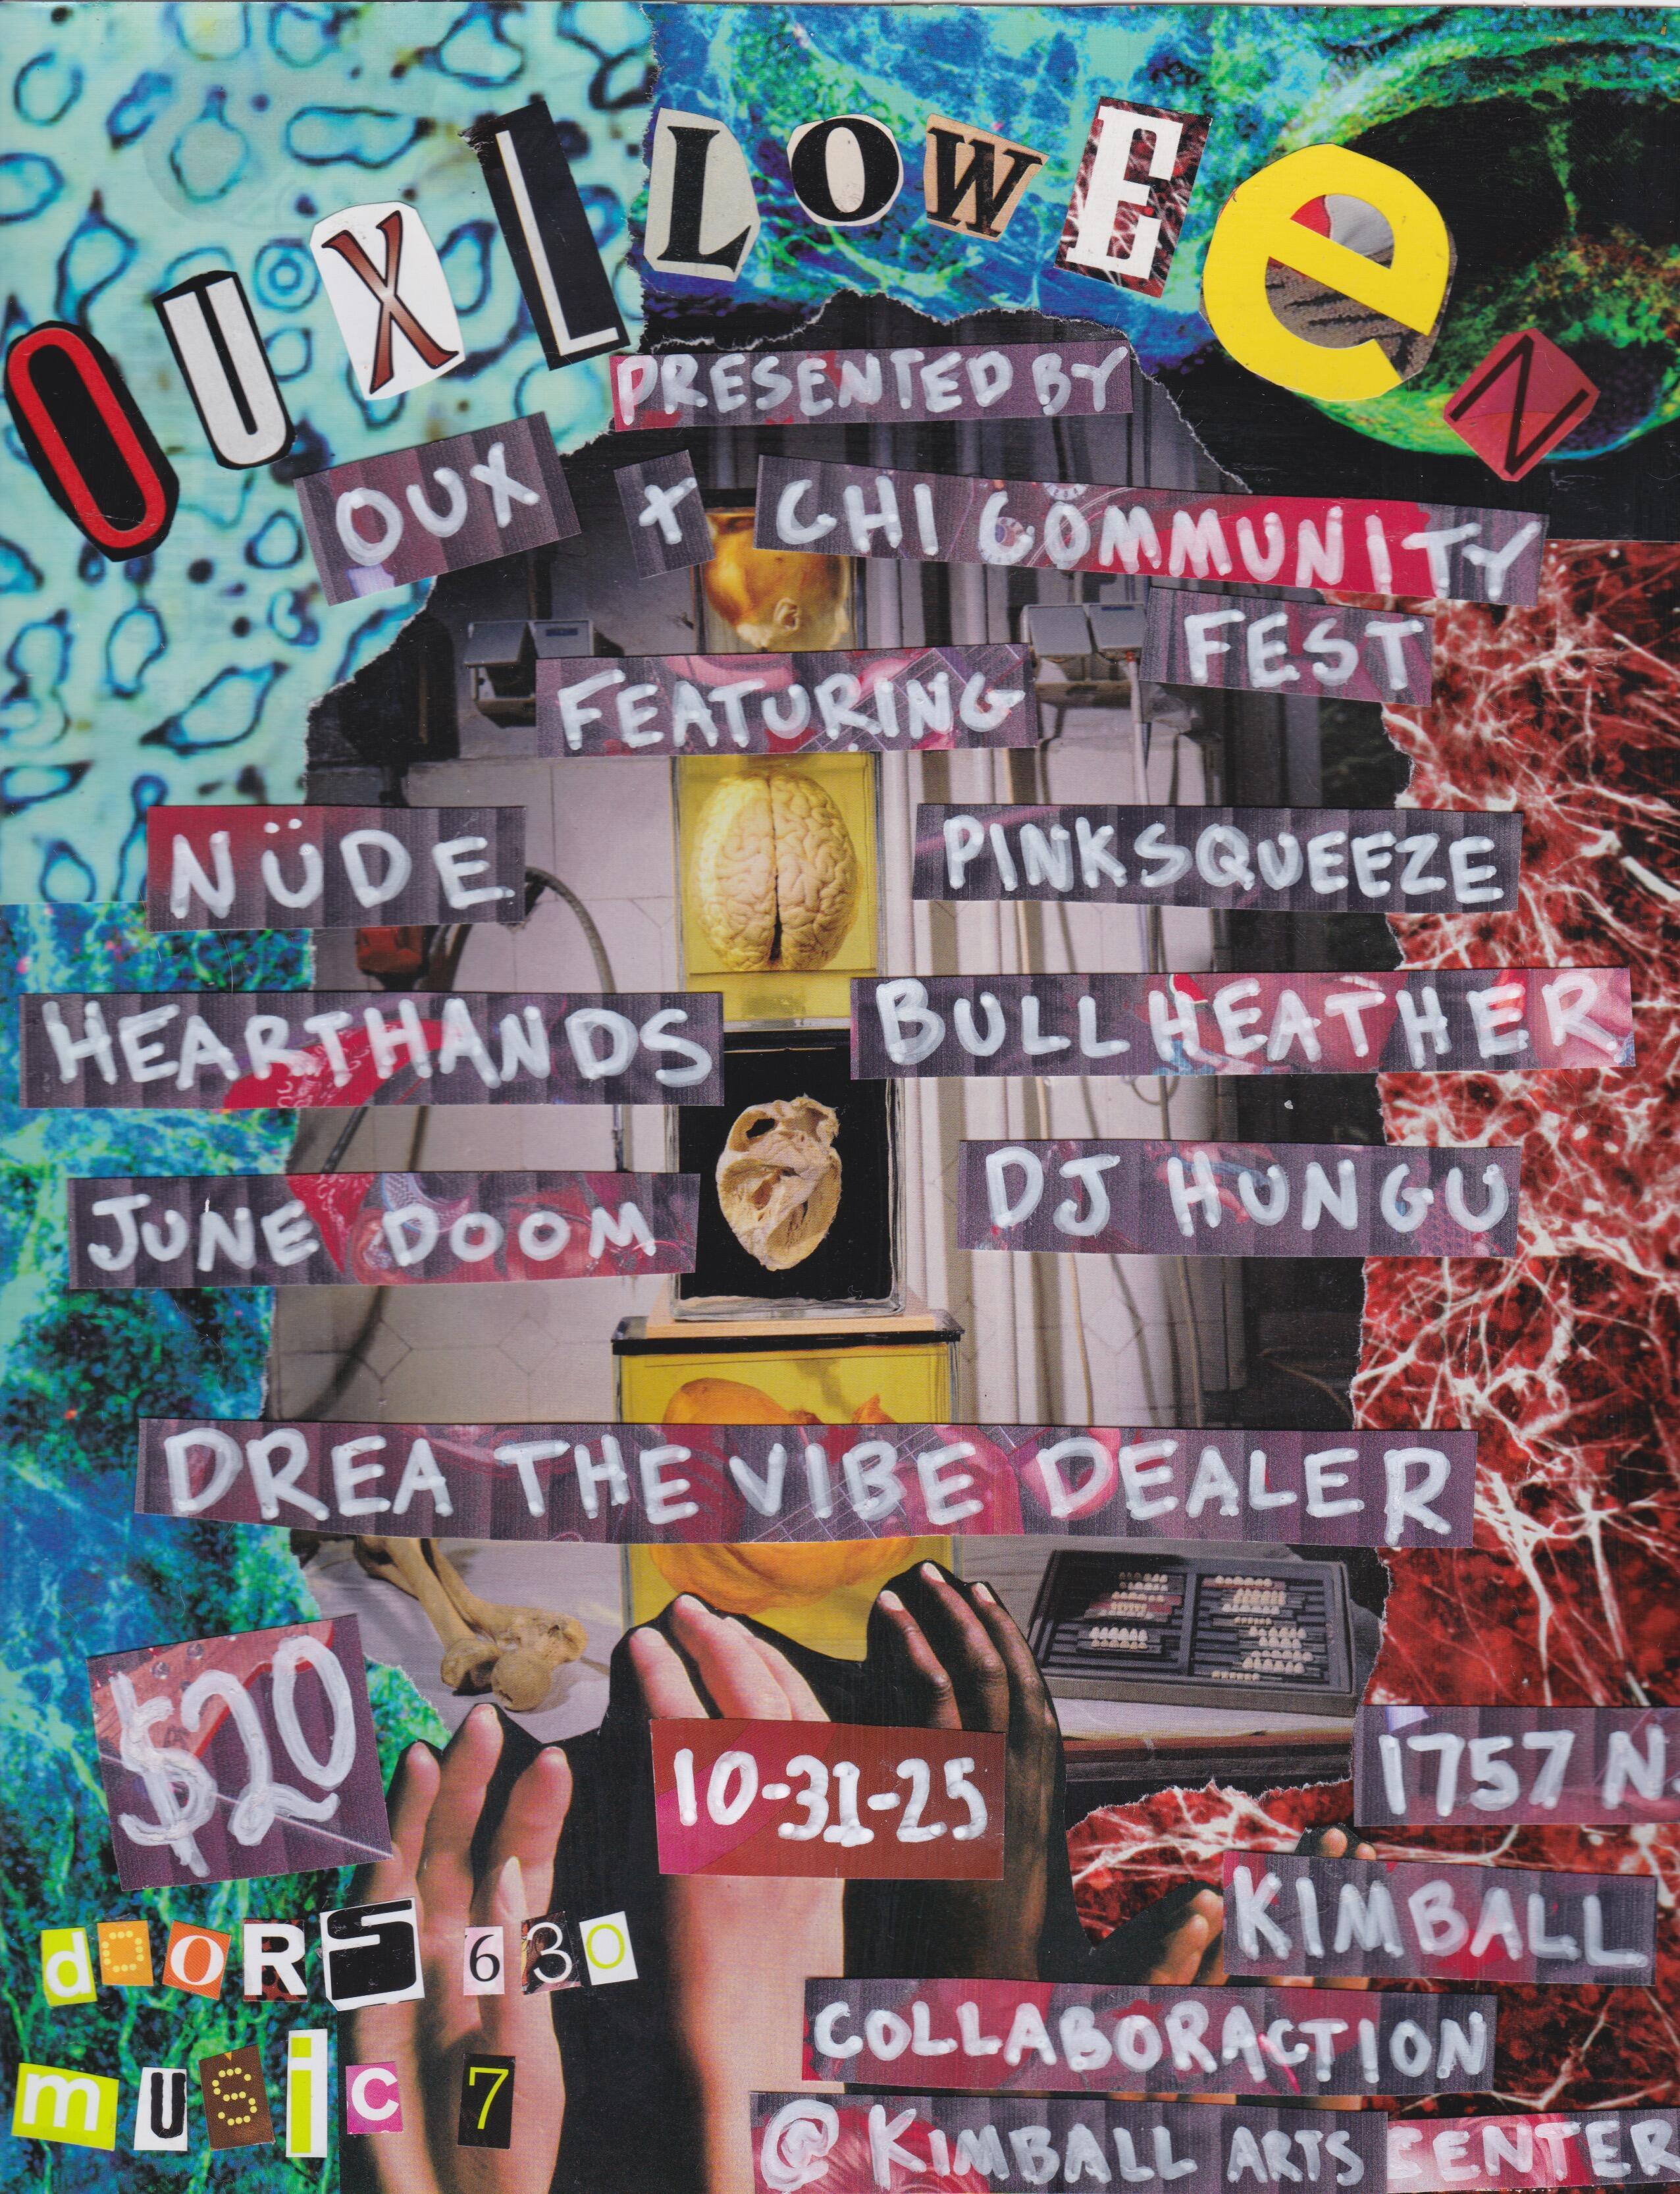 OUXLLOWEeN
PRESENTED BY
OUX + CHI COMMUNITY
FEST
FEATURING
NÜDE
PINKSQUEEZE
HEARTHANDS
BULL HEATHER
JUNE DOOM
DJ HUNGU
DREA THE VIBE DEALER
$20
10-31-25
1757 N.
KIMBALL
dooRS 630
COLLABORACTION
music 7
@ KIMBALL ARTS CENTER